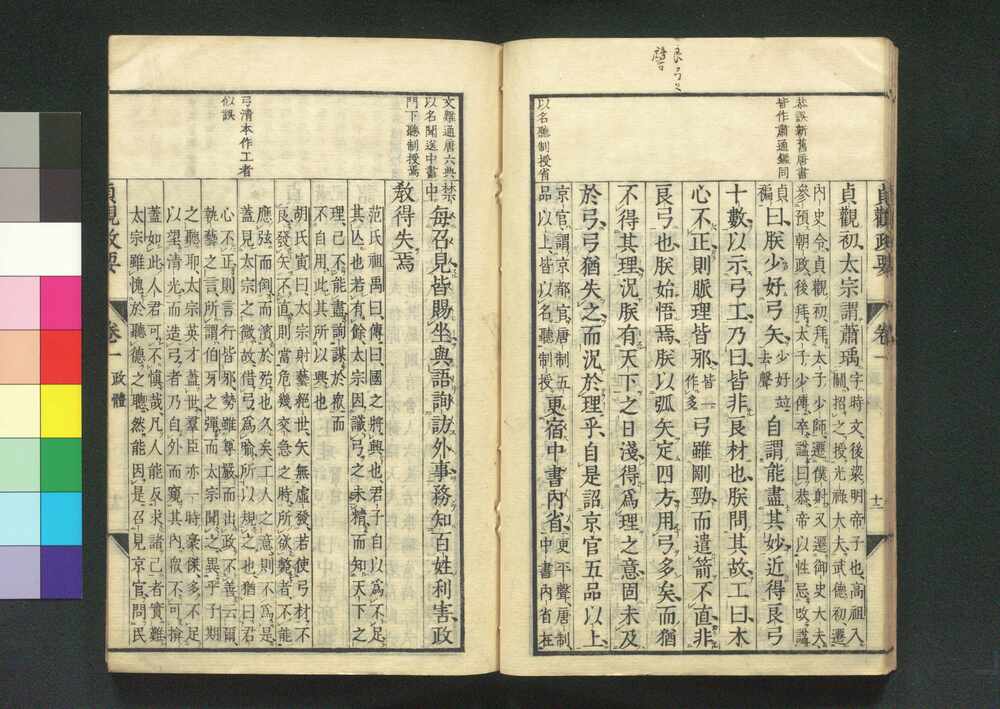 良弓之
譬
恭誤新舊唐書
皆作肅通鑑同
以名聽制授省
貞觀政要 卷一
貞觀初太宗謂蕭瑀字時文後梁明帝子也高祖入
關招之授光祿大夫武德初遷
內史令貞觀初拜太子少師遷僕射又遷御史大夫
參預朝政後拜太子少傅卒謚曰恭帝以性忌改謚
貞褊曰朕少好弓矢少好竝去聲自謂能盡其妙近得良弓
十數以示弓工乃曰皆非良材也朕問其故工曰木
心不正則脈理皆邪皆一作多弓雖剛勁而遣箭不直非
良弓也朕始悟焉朕以弧矢定四方用弓多矣而猶
不得其理況朕有天下之日淺得爲理之意固未及
於弓弓猶失之而況於理乎自是詔京官五品以上
京官謂京都官唐制五
品以上皆以名聽制授更宿中書內省更平聲唐制
中書內省在
文雖通唐六典
以名聞送中書
門下聽制授焉
弓清本作工者
似誤
禁中每召見皆賜坐與語詢訪外事務知百姓利害政
教得失焉
范氏祖禹曰傳曰國之將興也君子自以爲不足
其亾也若有餘太宗因識弓之未精而知天下之
理己不能盡詢謀於衆而
不自用此其所以興也
胡氏寅曰太宗射藝絕世矢無虛發若使弓材不
良發矢不直則當危幾交急之時所欲斃者不能
應弦而倒而濱於殆也久矣工人之意則不爲是
蓋見太宗之微故借弓爲喻所以規之也猶曰君
心不正則言行皆邪勢雖尊嚴而出政不善云爾
執藝之言所謂伯牙之彈而太宗聞之異乎子期
之聽耶太宗英才蓋世羣臣亦一時豪傑多不足
以望清光而造弓者乃自外而窺其內叚不可揜
蓋如此人君可不慎哉凡人能反求諸己者實難
太宗雖愧於聽德之聰然能因是召見京官問民
貞觀政要 卷一 政體